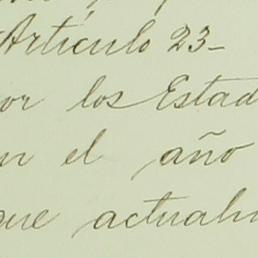 Artículo 23-
or los Estad
n el año
que actual